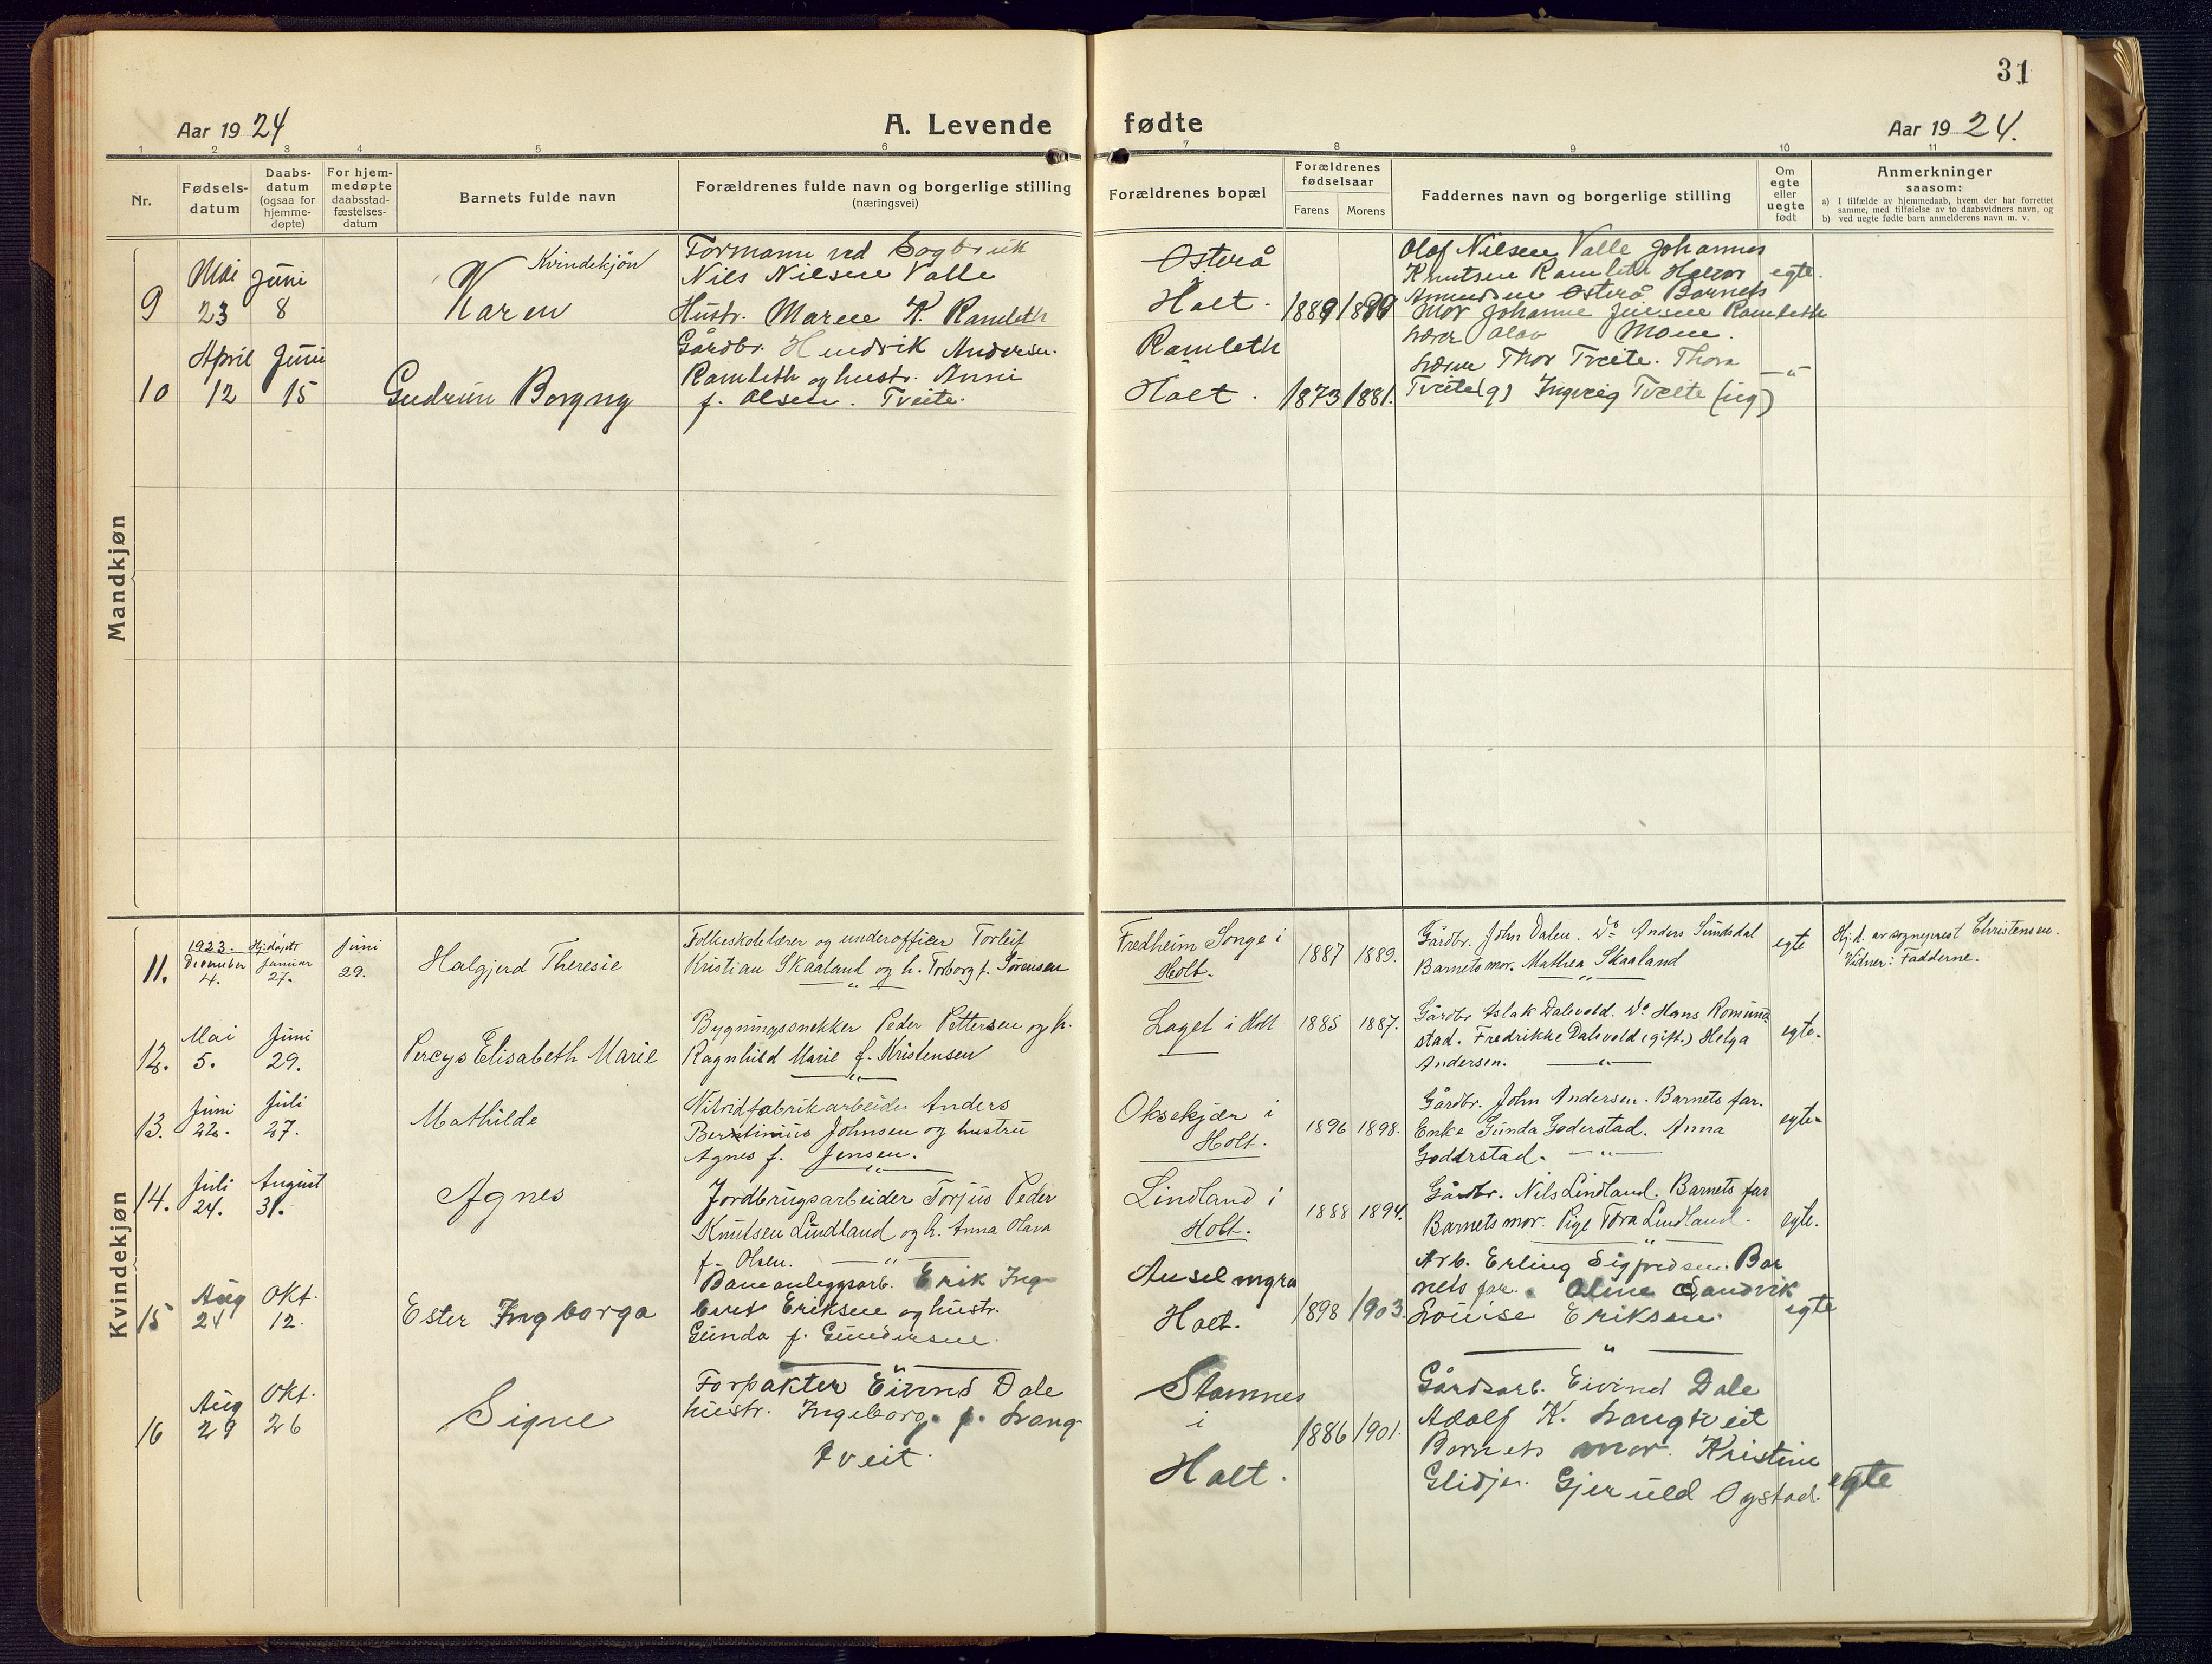 31
Aar 1924
A. Levende fødte
Aar 1924.
1 2 3 4 5 6 7 8 9 10 11
Nr.
Fødsels-
datum
Daabs-
datum
(ogsaa for
hjemme-
døpte)
For hjem-
medøpte
daabsstad-
fæstelses-
datum
Barnets fulde navn
Forældrenes fulde navn og borgerlige stilling
(næringsvei)
Forældrenes bopæl
Forældrenes
fødselsaar
Farens Morens
Faddernes navn og borgerlige stilling
Om
egte
eller
uegte
født
Anmerkninger
saasom:
a) I tilfælde av hjemmedaab, hvem der har forrettet
samme, med tilføielse av to daabsvidners navn, og
b) ved uegte fødte barn anmelderens navn m. v.
Mandkjøn
9
Mai
23
Juni
8
Kvindekjøn
Karen
Formann ved
Nils Nilsen Valle
Hustr. Maren K. Ramleth
Osterå
Holt.
1889 1899
Olaf Nilsen Valle Johannes
Knutsen Ramleth Halvor
Amundsen Osterå Barnets
Mor Johanne Jensen Ramleth
egte.
10
April
12
Juni
15
Gudrun Borgny
Gårdbr. Hendrik Andersen.
Ramleth og hustr. Anni
f. Olsen. Tveite.
Ramleth
Holt.
1873 1881.
Olav Moen.
Thor Tveite. Thora
Tveite (g) Ingveig Tveite (ug)
— " —
Kvindekjøn
11.
1923.
December
4.
Hj.døpt
Januar
27.
Juni
29.
Halgjerd Theresie
Folkeskolelærer og underofficer Torleif
Kristian Skaaland og h. Torborg f. Sørensen
— " —
Fredheim Songe i
Holt.
1887 1889.
Gårdbr. John Dalen. Do Anders Sundsdal
Barnets mor. Mathea Skaaland
— " —
egte
Hj.d. av sogneprest Christensen.
Vidner: Fadderne.
12.
Mai
5.
Juni
29.
Percys Elisabeth Marie
Bygningssnekker Peder Pettersen og h.
Ragnhild Marie f. Kristensen
— " —
Laget i Holt
1885 1887.
Gårdbr Aslak Dalevold. Do Hans Romund-
stad. Fredrikke Dalevold (gift.) Helga
Andersen. — " —
egte.
13.
Juni
22.
Juli
27.
Mathilde
Nitridfabrikarbeider Anders
Berntinius Johnsen og hustru
Agnes f. Jensen.
— " —
Oksekjær i
Holt.
1896 1898.
Gårdbr. John Andersen. Barnets far.
Enke Gunda Goderstad. Anna
Godderstad. — " —
egte.
14.
Juli
24.
August
31.
Agnes
Jordbrugsarbeider Torjus Peder
Knutsen Lindland og h. Anna Olava
f. Olsen. — " —
Lindland i
Holt.
1888 1894.
Gårdbr. Nils Lindland. Barnets far
Barnets mor. Pige Tora Lindland.
— " —
egte.
15
Aug
24
Okt.
12.
Ester Ingborga
Baneanleggsarb. Erik Ing-
bret Eriksen og hustr.
Gunda f. Gundersen.
— " —
Holt.
1898 1903.
Arb. Erling Sigfredsen. Bar
nets far. Oline Sandvik
Louise Eriksen.
— " —
egte
16
Aug
29
Okt.
26
Signe
Forpakter Eivind Dale
hustr. Ingeborg f. Lang-
tveit.
Stamnes
i
Holt.
1886 1901.
Gårdsarb. Eivind Dale
Adolf K. Langtveit
Barnets mor. Kristine
Glidje. Gjeruld Ogstad.
egte